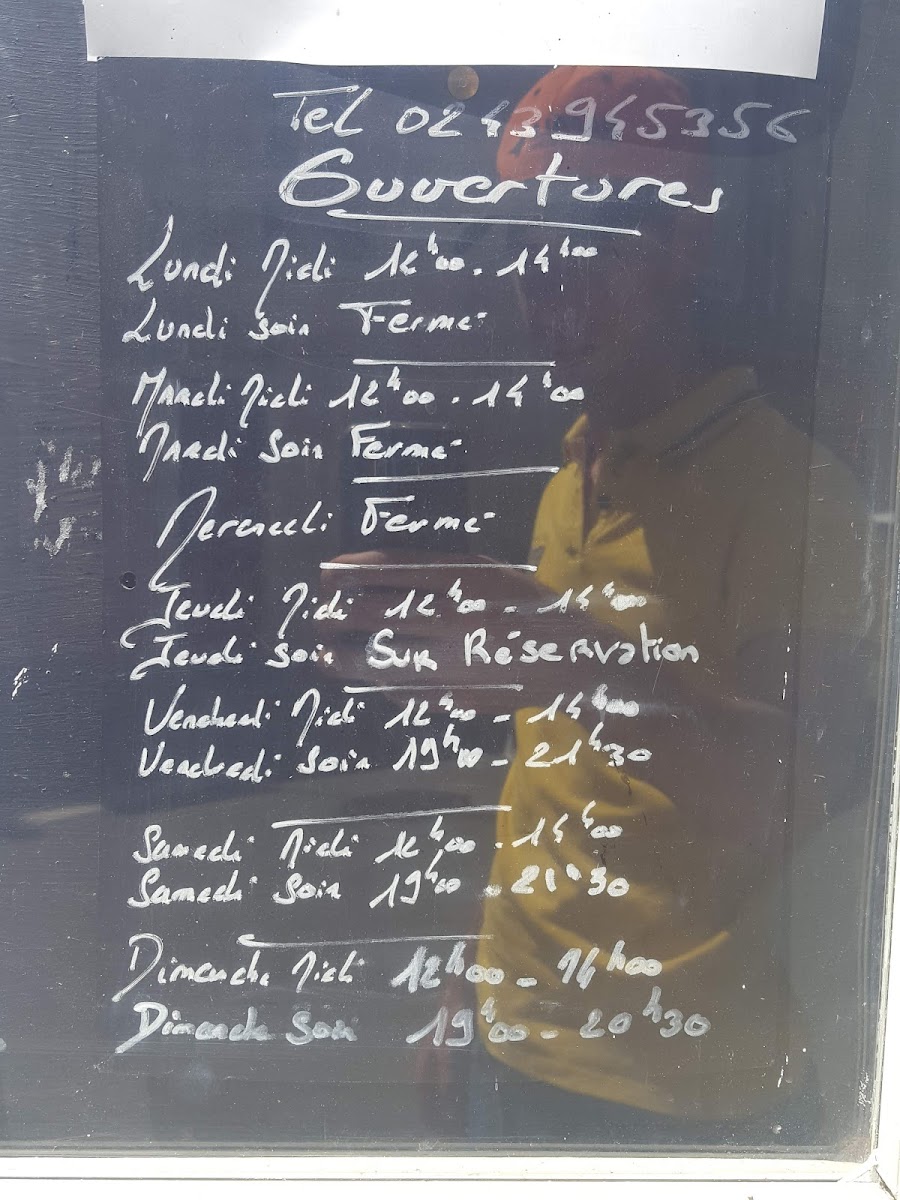 Tel 0243945356
Ouvertures
Lundi Midi 12h00 - 14h00
Lundi soir Fermé
Mardi Midi 12h00 - 14h00
Mardi Soir Fermé
Mercredi Fermé
Jeudi Midi 12h00 - 14h00
Jeudi soir Sur Réservation
Vendredi Midi 12h00 - 14h00
Vendredi soir 19h00 - 21h30
Samedi Midi 12h00 - 14h00
Samedi soir 19h00 - 21h30
Dimanche Midi 12h00 - 14h00
Dimanche Soir 19h00 - 20h30